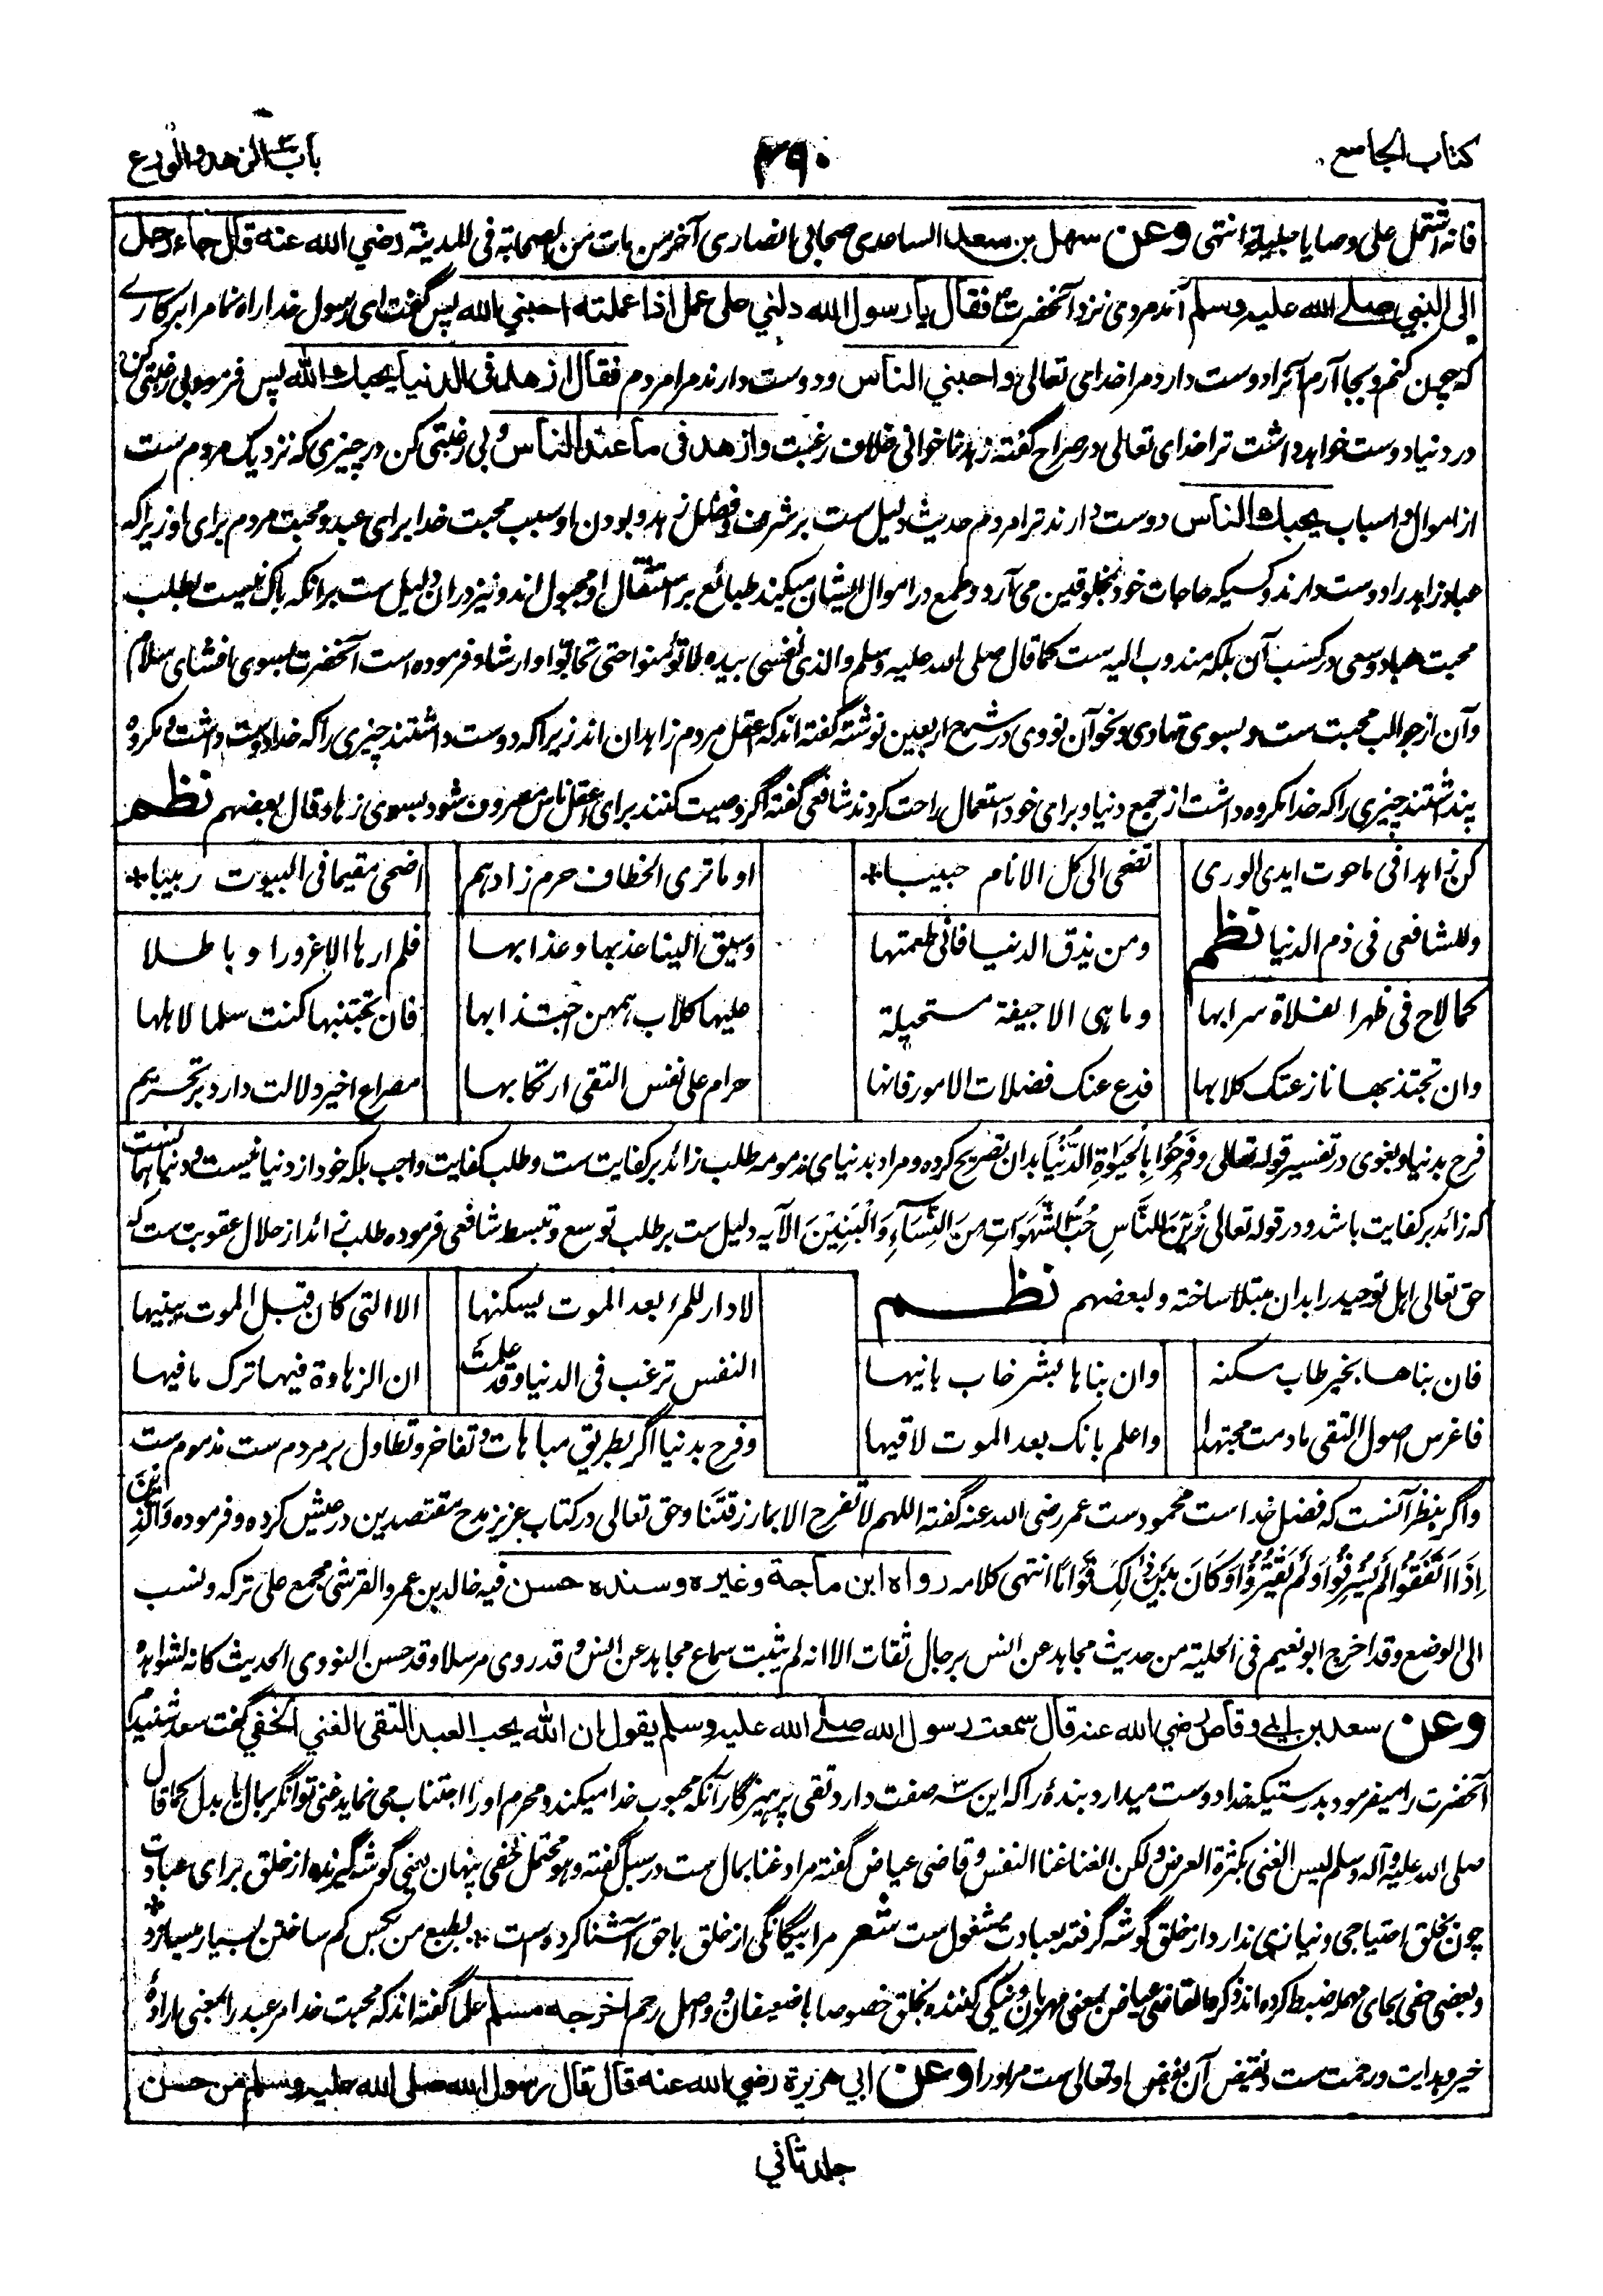 كتاب الجامع
۴۹۰
باب الزهد والورع
فانه اشتمل على وصايا جليلة انتهى وعن سهل بن سعد الساعدی صحابی انصاری آخر من مات من الصحابة فی المدينة رضي الله عنه قال جاء رجل
الى النبي صلے الله عليه وسلم آمد مردی نزد آنحضرت فقال يا رسول الله دلني على عمل اذا عملته احبني الله پس گفت ای رسول خدا راه نما مرا بر کارے
که چون کنم و بجا آرم آنرا دوست دارد مرا خدای تعالی و احبني الناس و دوست دارند مرا مردم فقال ازهد فی الدنيا يحبك الله پس فرمود بی رغبتی کن
در دنیا دوست خواهد داشت ترا خدای تعالی در صراح گفته زهد ناخواهانی خلاف رغبت وازهد فى ما عند الناس و بی رغبتی کن در چیزی که نزدیک مردم ست
از اموال و اسباب يحبك الناس دوست دارند ترا مردم حدیث دلیل ست بر شرف و فضل زهد و بودن او سبب محبت خدا برای عبد و محبت مردم برای او زیراکه
عباد زاهد را دوست دارند و کسیکه حاجات خود بمخلوقین می آرد و طمع در اموال ایشان میکند طبائع بر استثقال او مجبول اند و نیز دران دلیل ست برانکه باک نیست بطلب
محبت عباد و سعی در کسب آن بلکه مندوب الیه ست کما قال صلی الله علیه وسلم والذی نفسی بیده لا تؤمنوا حتی تحابوا و ارشاد فرموده است آنحضرت بسوی افشای سلام
و آن از جوالب محبت ست و بسوی تهادی و نحو آن نووی در شرح اربعین نوشته گفته اند که اعقل مردم زاهدان اند زیراکه دوست داشتند چیزی را که خدا دوست داشت و مکروه
پنداشتند چیزی را که خدا مکروه داشت از جمع دنیا و برای خود استعمال راحت کردند شافعی گفته اگر وصیت کنند برای اعقل ناس مصروف شود بسوی زهاد و قال بعضهم نظم
کن زاهدا فی ما حوت ایدی الوری
تضحی الی کل الانام حبیبا
او ما تری الخطاف حرم زادهم
اضحی مقیما فی البیوت ربیبا
وللشافعی فی ذم الدنیا نظم
ومن یذق الدنیا فانی طعمتها
وسیق الینا عذبها وعذابها
فلم ارها الا غرورا وباطلا
کما لاح فی ظهر الفلاة سرابها
وما هی الا جیفة مستحیلة
علیها کلاب همهن اجتذابها
فان تجتنبها کنت سلما لاهلها
وان تجتذبها نازعتک کلابها
فدع عنک فضلات الامور فانها
حرام علی نفس التقی ارتکابها
مصراع اخیر دلالت دارد بر تحریم
فرح بدنیا و بغوی در تفسیر قوله تعالی وَفَرِحُوا بِالْحَيَوٰةِ الدُّنْيَا بدان تصریح کرده و مراد بدنیای مذمومه طلب زائد بر کفایت ست و طلب کفایت واجب بلکه خود از دنیا نیست و دنیا همانست
که زائد بر کفایت باشد و در قوله تعالی زُيِّنَ لِلنَّاسِ حُبُّ الشَّهَوَاتِ مِنَ النِّسَآءِ وَالْبَنِيْنَ الآیه دلیل ست بر طلب توسع و تبسط شافعی فرموده طلب زائد از حلال عقوبت ست که
حق تعالی اهل توحید را بدان مبتلا ساخته و لبعضهم نظم
لا دار للمرء بعد الموت یسکنها
الا التی کان قبل الموت یبنیها
فان بناها بخیر طاب مسکنه
وان بناها بشر خاب بانیها
النفس ترغب فی الدنیا وقد علمت
ان الزهادة فیها ترک ما فیها
فاغرس اصول التقی ما دمت مجتهدا
واعلم بانک بعد الموت لاقیها
و فرح بدنیا اگر بطریق مباهات و تفاخر و تطاول بر مردم ست مذموم ست
و اگر بنظر آنست که فضل خداست محمود ست عمر رضی الله عنه گفته اللهم لا نفرح الا بما رزقتنا و حق تعالی در کتاب عزیز مدح مقتصدین در معیش کرده و فرموده وَالَّذِيْنَ
اِذَا اَنْفَقُوْا لَمْ يُسْرِفُوْا وَلَمْ يَقْتُرُوْا وَكَانَ بَيْنَ ذٰلِكَ قَوَامًا انتهی کلامه رواه ابن ماجة وغيره وسنده حسن فیه خالد بن عمرو القرشی مجمع علی ترکه ونسب
الی الوضع وقد اخرج ابو نعیم فی الحلیة من حدیث مجاهد عن انس برجال ثقات الا انه لم یثبت سماع مجاهد عن انس وقد روی مرسلا وقد حسن النووی الحدیث کانه لشواهده
وعن سعد بن ابي وقاص رضي الله عنه قال سمعت رسول الله صلے الله عليه وسلم يقول ان الله يحب العبد التقي الغني الخفي گفت سعد شنیدم
آنحضرت را میفرمود بدرستیکه خدا دوست میدارد بندهٔ را که این سه صفت دارد تقی پرهیزگار آنکه محبوب خدا میکند و محرم او را اجتناب می نماید غنی توانگر بمال یا بدل کما قال
صلی الله علیه وآله وسلم لیس الغنی بکثرة العرض ولکن الغنا غنا النفس و قاضی عیاض گفته مراد غنا بمال ست در سبل گفته وهو محتمل خفی پنهان یعنی گوشه گیرنده از خلق برای عبادت
چون بخلق احتیاجی و نیازی ندارد از خلق گوشه گرفته بعبادت مشغول ست شعر مرا بیگانگی از خلق با حق آشنا کردست بطبع من نجس کم ساختن بسیار میسازد
و بعضی حفی بحای مهمله ضبط کرده اند ذکره القاضی عیاض بمعنی مهربان و نیکی کننده بخلق خصوصا با ضعیفان و وصل رحم اخرجه مسلم علما گفته اند که محبت خدا مر عبد را بمعنی ارادهٔ
خیر و هدایت و رحمت ست و نقیض آن بغض او تعالی ست مر او را وعن ابي هريرة رضي الله عنه قال قال رسول الله صلى الله عليه وسلم من حسن
جلد ثاني